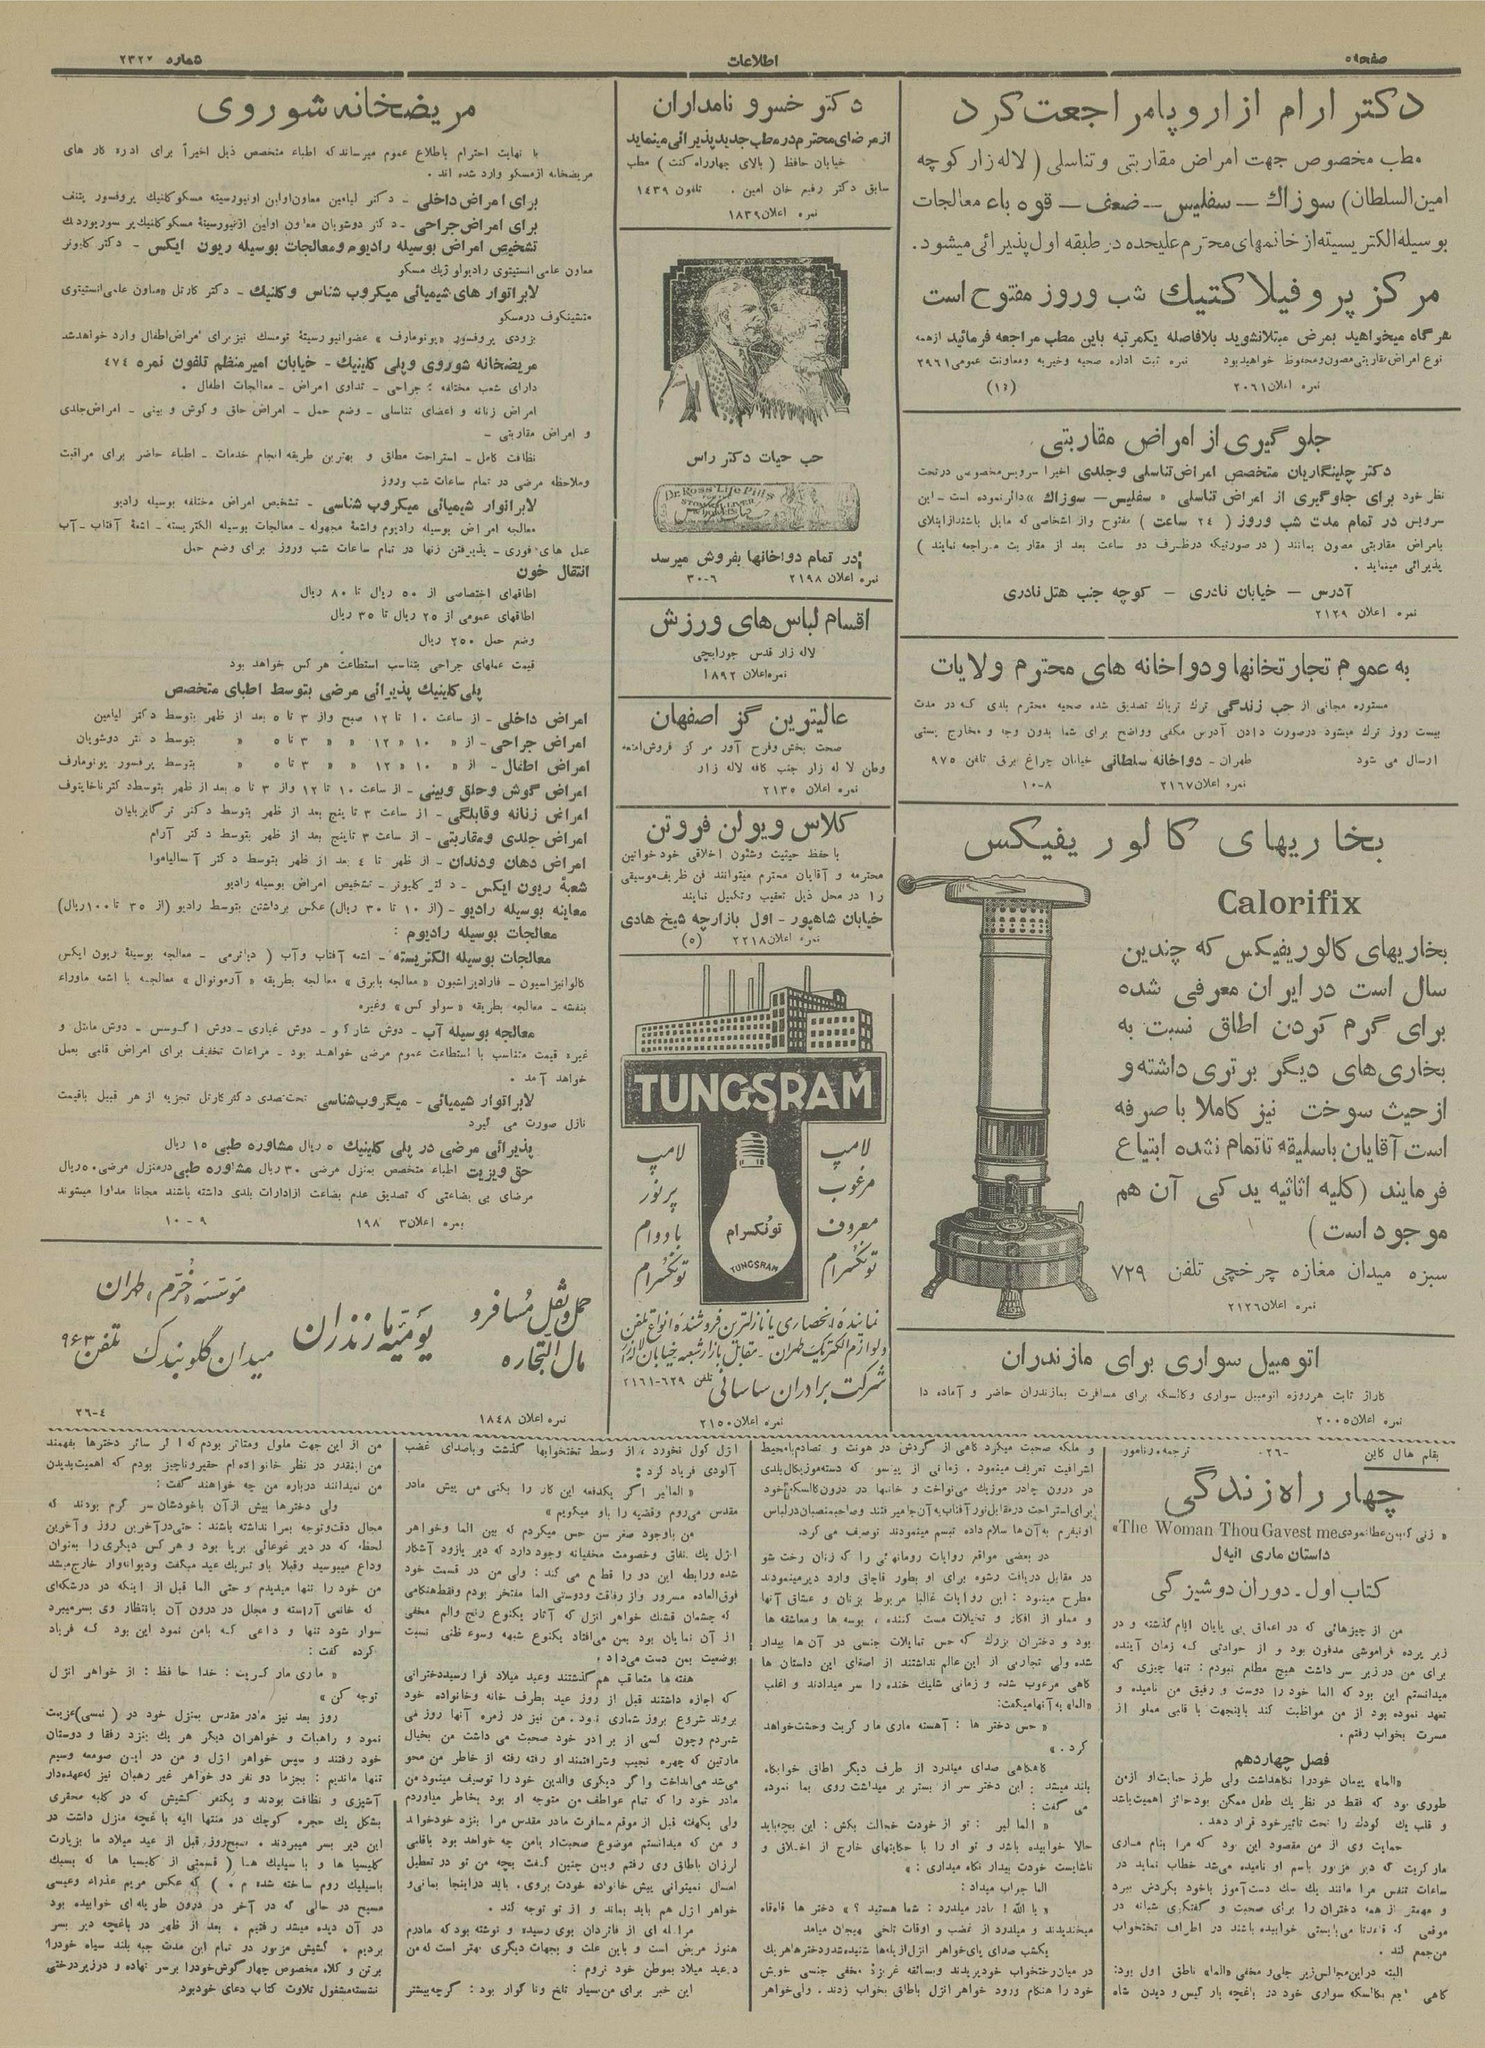 صفحه۵
اطلاعات
شماره ۲۳۲۷
دکتر ارام از اروپا مراجعت کرد
مطب مخصوص جهت امراض مقاربتی و تناسلی ( لاله زار کوچه
امین السلطان) سوزاك – سفلیس – ضعف – قوه باء معالجات
بوسیله الکتریسیته از خانمهای محترم علیحده در طبقه اول پذیرائی میشود.
مرکز پروفیلاکتیك شب وروز مفتوح است
هرگاه میخواهید بمرض مبتلا نشوید بلافاصله یکمرتبه باین مطب مراجعه فرمائید از همه
نوع امراض مقاربتی مصون ومحفوظ خواهید بود نمره ثبت اداره صحیه وخیریه ومعاونت عمومی ۲۹۶۱
نمره اعلان ۲۰۶۱
جلوگیری از امراض مقاربتی
دکتر چلینگاریان متخصص امراض تناسلی وجلدی اخیرا سرویس مخصوصی در تحت
نظر خود برای جلوگیری از امراض تناسلی « سفلیس – سوزاك » دائر نموده است – این
سرویس در تمام مدت شب وروز ( ۲٤ ساعت ) مفتوح واز اشخاصی که مایل باشند از ابتلای
بامراض مقاربتی مصون بمانند ( در صورتیکه در ظرف دو ساعت بعد از مقاربت مراجعه نمایند )
پذیرائی مینماید .
آدرس – خیابان نادری – کوچه جنب هتل نادری
نمره اعلان ۲۱۲۹
به عموم تجارتخانها ودواخانه های محترم ولایات
مستوره مجانی از حب زندگی ترك تریاك تصدیق شده صحیه محترم بلدی که در مدت
بیست روز ترك میشود درصورت دادن آدرس مکفی وواضح برای شما بدون وجه و مخارج پستی
ارسال می شود طهران – دواخانه سلطانی خیابان چراغ برق تلفن ۹۷۵
نمره اعلان ۲۱۶۷ ۸–۱۰
بخاریهای کالوریفیکس
Calorifix
بخاریهای کالوریفیکس که چندین
سال است در ایران معرفی شده
برای گرم کردن اطاق نسبت به
بخاری‌های دیگر برتری داشته و
از حیث سوخت نیز کاملا با صرفه
است آقایان باسلیقه تا تمام نشده ابتیاع
فرمایند (کلیه اثاثیه یدکی آن هم
موجود است)
سبزه میدان مغازه چرخچی تلفن ۷۲۹
نمره اعلان ۲۱۲۶
اتومبیل سواری برای مازندران
گاراژ ثابت هرروزه اتومبیل سواری وکالسکه برای مسافرت بمازندران حاضر و آماده دا
نمره اعلان ۲۰۰۵
دکتر خسرو نامداران
از مرضای محترم در مطب جدید پذیرائی مینماید
خیابان حافظ ( بالای چهارراه کنت ) مطب
سابق دکتر رفیع خان امین . تلفون ۱٤۳۹
نمره اعلان ۱۸۳۹
حب حیات دکتر راس
Dr. Ross' Life Pills
در تمام دواخانها بفروش میرسد
نمره اعلان ۲۱۹۸ ۶–۳۰
اقسام لباس های ورزش
لاله زار قدس جورابچی
نمره اعلان ۱۸۹۲
عالیترین گز اصفهان
صحت بخش وفرح آور مرکز فروش امتعه
وطن لاله زار جنب کافه لاله زار
نمره اعلان ۲۱۳۵
کلاس ویولن فروتن
با حفظ حیثیت وشئون اخلاقی خود خوانین
محترمه و آقایان محترم میتوانند فن ظریف موسیقی
را در محل ذیل تعقیب وتکمیل نمایند
خیابان شاهپور – اول بازارچه شیخ هادی
نمره اعلان ۲۲۱۸ (۵)
TUNGSRAM
لامپ مرغوب معروف تونگسرام
لامپ پرنور بادوام تونگسرام
تونگسرام
TUNGSRAM
نماینده انحصاری با نازلترین فروشنده انواع تلفن
ولوازم الکتریك طهران - مقابل بازار شعبه خیابان لاله‌زار
شرکت برادران ساسانی تلفن ۶۲۹–۲۱۶۱
نمره اعلان ۲۱۵۰
مریضخانه شوروی
با نهایت احترام باطلاع عموم میرساند که اطباء متخصص ذیل اخیراً برای اداره کار های
مریضخانه از مسکو وارد شده اند .
برای امراض داخلی – دکتر لیامین معاون اولین اونیورسیته مسکو کلنیك پروفسور پلتنف
برای امراض جراحی – دکتر دوشوبان معاون اولین اونیورسیتهٔ مسکو کلنیك
تشخیص امراض بوسیله رادیوم ومعالجات بوسیله ریون ایکس – دکتر کلیونر
معاون علمی انستیتوی رادیولوژیك مسکو
لابراتوار های شیمیائی میکروب شناس وکلنیك – دکتر کارتل معاون علمی انستیتوی
متشنیکوف در مسکو
بزودی پروفسور «یونومارف» عضو انیورسیتهٔ تومسك نیز برای امراض اطفال وارد خواهد شد
مریضخانه شوروی وپلی کلینیك – خیابان امیر منظم تلفون نمره ٤٧٤
دارای شعب مختلفه : جراحی – تداوی امراض – معالجات اطفال .
امراض زنانه و اعضای تناسلی – وضع حمل – امراض حلق و گوش و بینی – امراض جلدی
و امراض مقاربتی –
نظافت کامل – استراحت مطلق و بهترین طریقه انجام خدمات – اطباء حاضر برای مراقبت
وملاحظه مرضی در تمام ساعات شب وروز
لابراتوار شیمیائی میکروب شناسی – تشخیص امراض مختلفه بوسیله رادیو
معالجه امراض بوسیله رادیوم واشعهٔ مجهوله – معالجات بوسیله الکتریسته – اشعهٔ آفتاب – آب
عمل های فوری – پذیرفتن زنها در تمام ساعات شب وروز برای وضع حمل
انتقال خون
اطاقهای اختصاصی از ۵۰ ریال تا ۸۰ ریال
اطاقهای عمومی از ۲۵ ریال تا ۳۵ ریال
وضع حمل ۲۵۰ ریال
قیمت عملهای جراحی بتناسب استطاعت هر کس خواهد بود
پلی کلینیك پذیرائی مرضی بتوسط اطبای متخصص
امراض داخلی – از ساعت ۱۰ تا ۱۲ صبح واز ۳ تا ۵ بعد از ظهر بتوسط دکتر لیامین
امراض جراحی – از » ۱۰ » ۱۲ » » ۳ تا ۵ » بتوسط دکتر دوشوبان
امراض اطفال – از » ۱۰ » ۱۲ » » ۳ تا ۵ » بتوسط پرفسور یونومارف
امراض گوش وحلق وبینی – از ساعت ۱۰ تا ۱۲ واز ۳ تا ۵ بعد از ظهر بتوسط دکتر ناخایتوف
امراض زنانه وقابلگی – از ساعت ۳ تا پنج بعد از ظهر بتوسط دکتر ترگابریلیان
امراض جلدی ومقاربتی – از ساعت ۳ تا پنج بعد از ظهر بتوسط دکتر آرام
امراض دهان ودندان – از ظهر تا ٤ بعد از ظهر بتوسط دکتر آسالیاموا
شعبهٔ ریون ایکس – دکتر کلیونر – تشخیص امراض بوسیله رادیو
معاینه بوسیله رادیو – (از ۱۰ تا ۳۰ ریال) عکس برداشتن بتوسط رادیو (از ۳۵ تا ۱۰۰ ریال)
معالجات بوسیله رادیوم :
معالجات بوسیله الکتریسته – اشعه آفتاب وآب ( دیاترمی – معالجه بوسیلهٔ ریون ایکس
کالوانیزاسیون – فارادیزاشیون «معالجه بابرق» معالجه بطریقه « آرسونوال » معالجه با اشعه ماوراء
بنفشه – معالجه بطریقه « سولو کس » وغیره
معالجه بوسیله آب – دوش شارکو – دوش غباری – دوش – دوش مانتل و
غیره قیمت متناسب با استطاعت عموم مرضی خواهد بود – مراعات تخفیف برای امراض قلبی بعمل
خواهد آمد .
لابراتوار شیمیائی – میکروب شناسی تحت تصدی دکتر کارتل تجزیه از هر قبیل باقیمت
نازل صورت می گیرد
پذیرائی مرضی در پلی کلینیك ۵ ریال مشاوره طبی ۱۵ ریال
حق ویزیت اطباء متخصص بمنزل مرضی ۳۰ ریال مشاوره طبی در منزل مرضی ۵۰ ریال
مرضای بی بضاعتی که تصدیق عدم بضاعت از ادارات بلدی داشته باشند مجانا مداوا میشوند
نمره اعلان ۱۹۸۳ ۹–۱۰
حمل ونقل مسافر و مال التجاره
یومیه مازندران
مؤسسه خرم طهران
میدان گلوبندك تلفن ۹۶۳
نمره اعلان ۱۸٤۸ ٤–۲۶
بقلم هال کاین –۲۶– ترجمه: رنامور
چهار راه زندگی
The Woman Thou Gavest me
داستان ماری انیل
کتاب اول - دوران دوشیزگی
من از چیزهائی که در اعماق بی پایان ایام گذشته و در
زیر پرده فراموشی مدفون بود و از حوادثی که زمان آینده
برای من در زیر سر داشت هیچ مطلع نبودم : تنها چیزی که
میدانستم این بود که الما خود را دوست و رفیق من نامیده و
تعهد نموده بود از من مواظبت کند باینجهت با قلبی مملو از
مسرت بخواب رفتم .
فصل چهاردهم
«الما» پیمان خود را نگاهداشت ولی طرز حمایت او از من
طوری بود که فقط در نظر یك طفل ممکن بود حائز اهمیت باشد
و قلب یك کودك را تحت تاثیر خود قرار دهد .
حمایت وی از من مقصود این بود که مرا بنام ماری
مارگریت که دیر مزبور باسم او نامیده می‌شد خطاب نماید در
ساعات تنفس مرا مانند یك سك دست آموز باخود بگردش ببرد
و مهمتر از همه دختران را برای صحبت و گفتگوی شبانه در
موقعی که قاعدتا می‌بایستی خوابیده باشند در اطراف تختخواب
من جمع کند .
البته در این مجالس زیر جلی و مخفی «الما» ناطق اول بود:
گاهی از کالسکه سواری خود در باغچه بارگیس و دیدن شاه
و ملکه صحبت میکرد گاهی از گردش در هونت و تصادم با محیط
اشرافیت تعریف مینمود . زمانی از پینسو که دسته موزیکال بلدی
در درون چادر موزیك می‌نواخت و خانمها در درون کالسکه خود
برای استراحت در مقابل نور آفتاب به آن جا میرفتند وصاحبمنصبان در لباس
اونیفرم به آن‌ها سلام داده تبسم مینمودند توصیف می‌کرد.
در بعضی مواقع روایات رومانهائی را که زنان رخت شو
در مقابل دریافت رشوه برای او بطور قاچاق وارد دیر مینمودند
مطرح مینمود : این روایات غالبا مربوط بزنان و عشاق آنها
و مملو از افکار و تخیلات مست کننده ، بوسه ها و معاشقه ها
بود و دختران بزرك که حس تمایلات جنسی در آن ها بیدار
شده ولی تجاربی از این عالم نداشتند از اصغای این داستان ها
گاهی مرعوب شده و زمانی شلیك خنده را سر میدادند و اغلب
«الما» به آنها میگفت:
« حس دختر ها : آهسته ماری مار گریت وحشت خواهد
کرد . »
گاهگاهی صدای میلدرد از طرف دیگر اطاق خوابگاه
بلند میشد . این دختر سر از بستر بر میداشت روی بما نموده
می گفت :
« الما لیر : تو از خودت خجالت بکش : این بچه باید
حالا خوابیده باشد و تو او را با حکایتهای خارج از اخلاق و
ناشایست خودت بیدار نگاه میداری : »
الما جواب میداد :
« یا الله ! مادر میلدرد : شما هستید ؟ » دختر ها قاه قاه
میخندیدند و میلدرد از غضب و اوقات تلخی بهیجان میامد
یکشب صدای پای خواهر انزل از پله‌ها شنیده شد و دختر ها هر یك
در میان رختخواب خود پریدند وبسائقه غریزهٔ مخفی جنسی خویش
خود را هنگام ورود خواهر انزل باطاق بخواب زدند . ولی خواهر
انزل گول نخورد ، از وسط تختخوابها گذشت وباصدای غضب
آلودی فریاد کرد :
« الما لیر اگر یکدفعه این کار را بکنی من پیش مادر
مقدس می‌روم وقضیه را باو میگویم »
من باوجود صغر سن حس میکردم که بین الما وخواهر
انزل یك نفاق وخصومت مخفیانه وجود دارد که دیر یازود آشکار
شده ورابطه این دو را قطع می کند : ولی من در قسمت خود
فوق‌العاده مسرور واز رفاقت ودوستی الما مفتخر بودم وفقط هنگامی
که چشمان قشنك خواهر انزل که آثار یکنوع رنج والم مخفی
از آن نمایان بود بمن می‌افتاد یکنوع شبهه وسوء ظنی نسبت
بوضعیت بمن دست می‌داد .
هفته ها متعاقب هم گذشتند وعید میلاد فرا رسید دخترانی
که اجازه داشتند قبل از روز عید بطرف خانه وخانواده خود
بروند شروع بروز شماری نمود . من نیز در زمره آنها روز می
شمردم وچون کسی از برادر خود صحبت می داشت من بخیال
مارتین که چهره نجیب وشرافتمند او رفته رفته از خاطر من محو
می‌شد می‌انداخت واگر دیگری والدین خود را توصیف مینمود من
مادر خود را که تمام عواطف من متوجه او بود بخاطر میاوردم
ولی یکهفته قبل از موقع مسافرت مادر مقدس مرا بنزد خود خواند
و من که میدانستم موضوع صحبت او بامن چه خواهد بود باقلبی
لرزان باطاق وی رفتم وبمن چنین گفت بچه من تو در تعطیل
امسال نمیتوانی پیش خانواده خودت بروی . باید در اینجا بمانی و
خواهر انزل هم باید بماند و از تو توجه کند .
مراسله ای از فاتردان بوی رسیده و نوشته بود که مادرم
هنوز مریض است و باین علت و بجهات دیگری بهتر است که من
در عید میلاد بموطن خود نروم :
این خبر برای من بسیار تلخ ونا گوار بود : گرچه بیشتر
من از این جهت ملول ومتاثر بودم که اگر سائر دخترها بفهمند
من اینقدر در نظر خانواده ام حقیر وناچیز بودم که اهمیت بدیدن
من نمیدادند درباره من چه خواهند گفت :
ولی دخترها بیش از آن باخودشان سر گرم بودند که
مجال دقت وتوجه بمرا نداشته باشند : حتی در آخرین روز و آخرین
لحظه که در دیر غوغائی برپا بود و هر کس دیگری را بعنوان
وداع میبوسید وقبلا باو تبریك عید میگفت ودیوانه‌وار خارج میشد
من خود را تنها میدیدم و حتی الما قبل از اینکه در درشگه‌ای
که خانمی آراسته و مجلل در درون آن بانتظار وی بسر میبرد
سوار شود تنها و داعی که بامن نمود این بود که فریاد
کرده گفت :
« ماری مار گریت : خدا حافظ : از خواهر انزل
توجه کن »
روز بعد نیز مادر مقدس بمنزل خود در ( نمسی) عزیمت
نمود و راهبات و خواهران دیگر هر یك بنزد رفقا و دوستان
خود رفتند و سپس خواهر انزل و من در این صومعه وسیع
تنها ماندیم : بجز ما دو نفر دو خواهر غیر رهبان نیز که عهده‌دار
آشپزی و نظافت بودند و یکنفر کشیش که در کلبه محقری
بشکل یك حجره کوچك در منتها الیه باغچه منزل داشت در
این دیر بسر میبردند . صبح روز قبل از عید میلاد ما بزیارت
کلیسیا ها و باسیلیك ها ( قسمتی از کلیسیا ها که بسبك
باسیلیك روم ساخته شده م . ) که عکس مریم عذراء وعیسی
مسیح در حالی که در آخر در درون طویله‌ای خوابیده بود
در آن دیده میشد رفتیم . بعد از ظهر در باغچه دیر بسر
بردیم . کشیش مزبور در تمام این مدت جبه بلند سیاه خود را
برتن و کلاه مخصوص چهار گوش خود را برسر نهاده و در زیر درختی
نشسته مشغول تلاوت کتاب دعای خود بود.